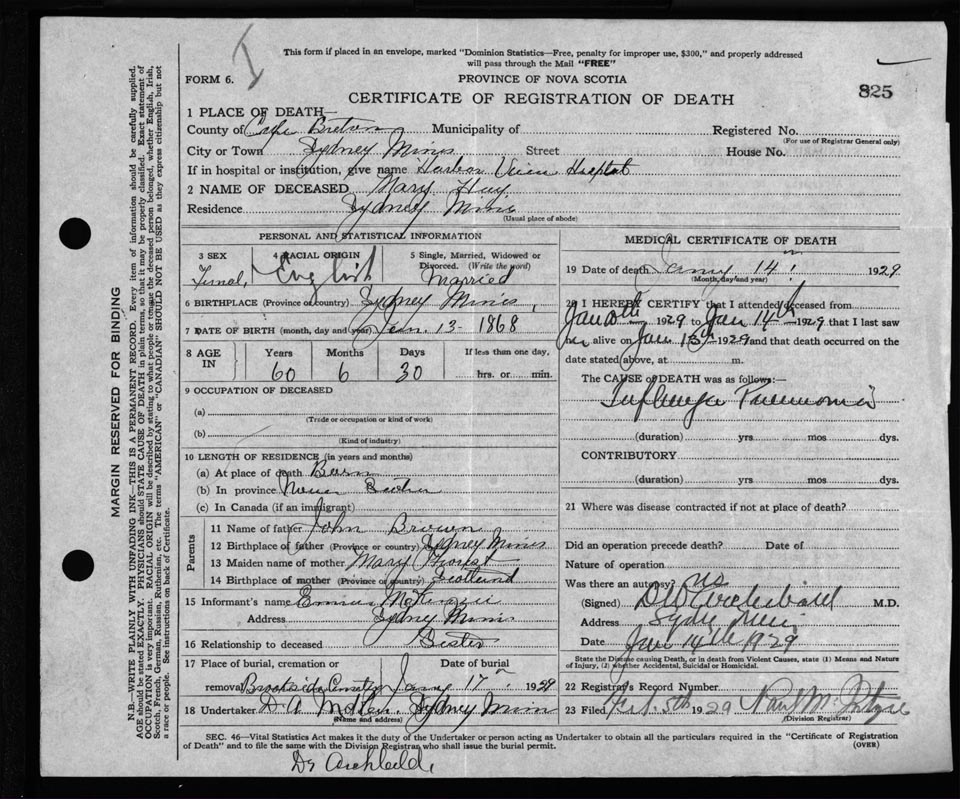 This form if placed in an envelope, marked "Dominion Statistics—Free, penalty for improper use, $300," and properly addressed
will pass through the Mail "FREE"
FORM 6.
PROVINCE OF NOVA SCOTIA
825
CERTIFICATE OF REGISTRATION OF DEATH
1 PLACE OF DEATH—
County of Cape Breton Municipality of Registered No.
(For use of Registrar General only)
City or Town Sydney Mines Street House No.
If in hospital or institution, give name Harbor View Hospital
2 NAME OF DECEASED Mary Hay
Residence Sydney Mines
(Usual place of abode)
PERSONAL AND STATISTICAL INFORMATION
3 SEX 4 RACIAL ORIGIN 5 Single, Married, Widowed or
Divorced. (Write the word)
Femal, English Married
6 BIRTHPLACE (Province or country) Sydney Mines
7 DATE OF BIRTH (month, day and year) 13 1868
8 AGE IN Years Months Days If less than one day,
60 6 30 hrs. or min.
9 OCCUPATION OF DECEASED
(a)
(Trade or occupation or kind of work)
(b)
(Kind of industry)
10 LENGTH OF RESIDENCE (in years and months)
(a) At place of death Born
(b) In province Nova Scotia
(c) In Canada (if an immigrant)
Parents
11 Name of father John Brown
12 Birthplace of father (Province or country) Sydney Mines
13 Maiden name of mother Mary
14 Birthplace of mother (Province or country) Scotland
15 Informant's name Emma McKenzie
Address Sydney Mines
16 Relationship to deceased Sister
17 Place of burial, cremation or Date of burial
removal Brookside Cemetery Jany 17 1929
18 Undertaker D. A. Sydney Mines
(Name and address)
MEDICAL CERTIFICATE OF DEATH
19 Date of death Jany 14 1929
(Month, day and year)
20 I HEREBY CERTIFY that I attended deceased from
Jan 1929 to Jan 14th 1929 that I last saw
her alive on Jan 13th 1929 and that death occurred on the
date stated above, at m.
The CAUSE of DEATH was as follows:—
Influenza Pneumonia
(duration) yrs mos dys.
CONTRIBUTORY
(duration) yrs mos dys.
21 Where was disease contracted if not at place of death?
Did an operation precede death? Date of
Nature of operation
Was there an autopsy? no
(Signed) Archibald M.D.
Address Sydney Mines
Date Jan 14th 1929
State the Disease causing Death, or in death from Violent Causes, state (1) Means and Nature
of Injury, (2) whether Accidental, Suicidal or Homicidal.
22 Registrar's Record Number
23 Filed Feb. 5th 1929
(Division Registrar)
SEC. 46—Vital Statistics Act makes it the duty of the Undertaker or person acting as Undertaker to obtain all the particulars required in the "Certificate of Registration
of Death" and to file the same with the Division Registrar who shall issue the burial permit. (OVER)
Dr Archibald,
MARGIN RESERVED FOR BINDING
N.B.—WRITE PLAINLY WITH UNFADING INK—THIS IS A PERMANENT RECORD. Every item of information should be carefully supplied.
AGE should be stated EXACTLY. PHYSICIANS should STATE CAUSE OF DEATH in plain terms, so that it may be properly classified. Exact statement of
OCCUPATION is very important. RACIAL ORIGIN will be described by stating to what people or tongue the deceased person belonged, whether English, Irish,
Scotch, French, German, Russian, Ruthenian, etc. The terms "AMERICAN" or "CANADIAN" SHOULD NOT BE USED as they express citizenship but not
a race or people. See instructions on back of Certificate.